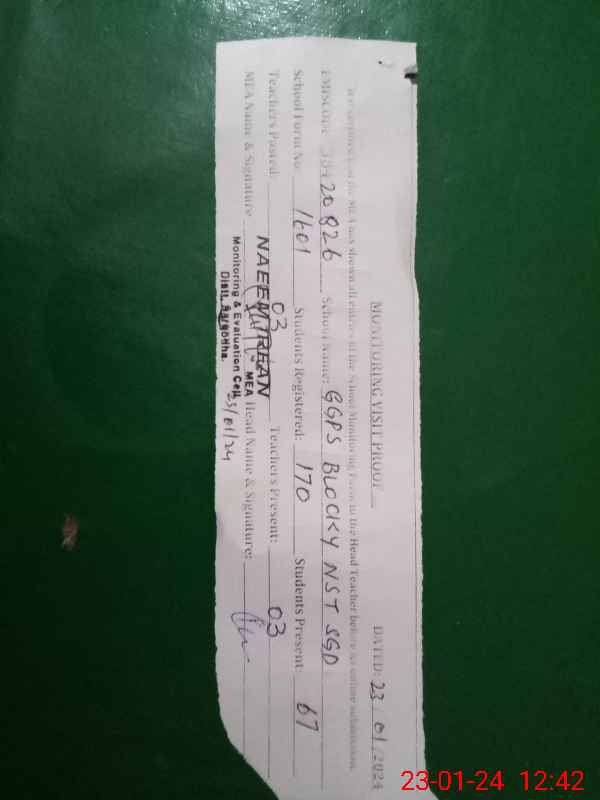 MONITORING VISIT PROOF DATED: 23/01/2024
of the MEA has shown all entries of the School Monitoring Form to the Head Teacher before its online submission.
EMISCODE 38420826 School Name: GGPS BLOCK Y NST SGD
School Form No. 1601 Students Registered: 170 Students Present: 67
Teachers Posted: 03 Teachers Present: 03
MEA Name & Signature Head Name & Signature:
MEA
Monitoring & Evaluation Cell,
Distt. Sargodha.
23/01/24
23-01-24 12:42